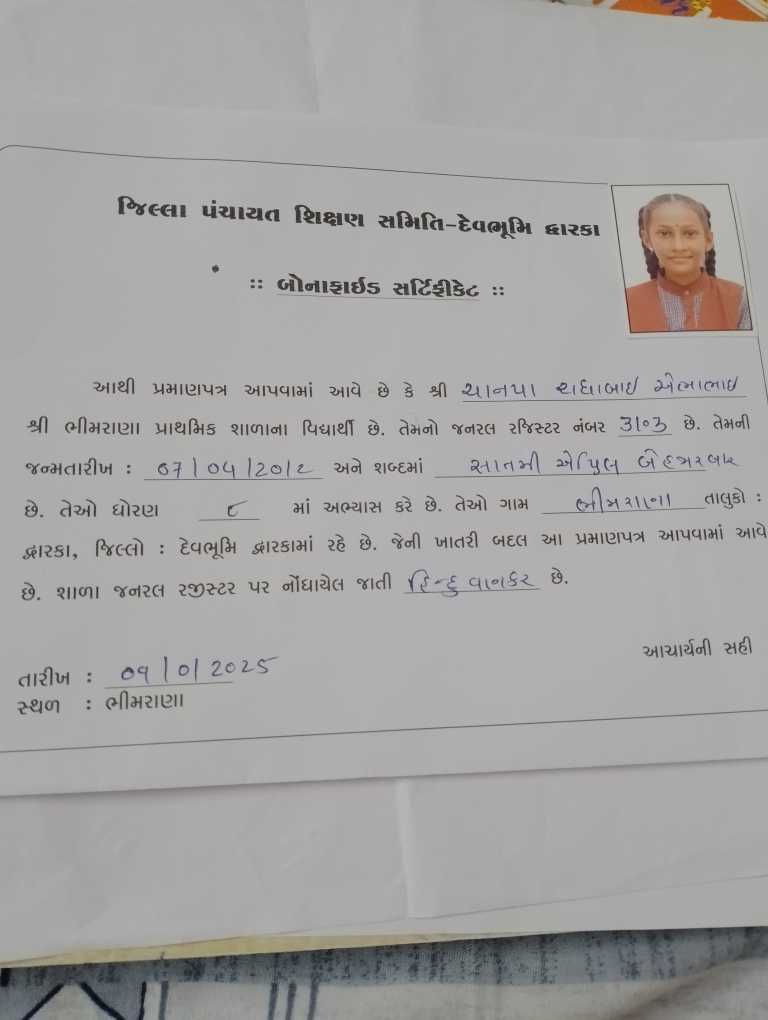 જિલ્લા પંચાયત શિક્ષણ સમિતિ-દેવભૂમિ દ્વારકા
:: બોનાફાઈડ સર્ટિફીકેટ ::
આથી પ્રમાણપત્ર આપવામાં આવે છે કે શ્રી ચાનપા રાધાબાઈ
શ્રી ભીમરાણા પ્રાથમિક શાળાના વિદ્યાર્થી છે. તેમનો જનરલ રજિસ્ટર નંબર 3103 છે. તેમની
જન્મતારીખ : 07/04/2012 અને શબ્દમાં સાતમી એપ્રિલ બે હજાર બાર
છે. તેઓ ધોરણ ૮ માં અભ્યાસ કરે છે. તેઓ ગામ ભીમરાણા તાલુકો :
દ્વારકા, જિલ્લો : દેવભૂમિ દ્વારકામાં રહે છે. જેની ખાતરી બદલ આ પ્રમાણપત્ર આપવામાં આવે
છે. શાળા જનરલ રજીસ્ટર પર નોંધાયેલ જાતી હિન્દુ વાનકર છે.
આચાર્યની સહી
તારીખ : 2025
સ્થળ : ભીમરાણા